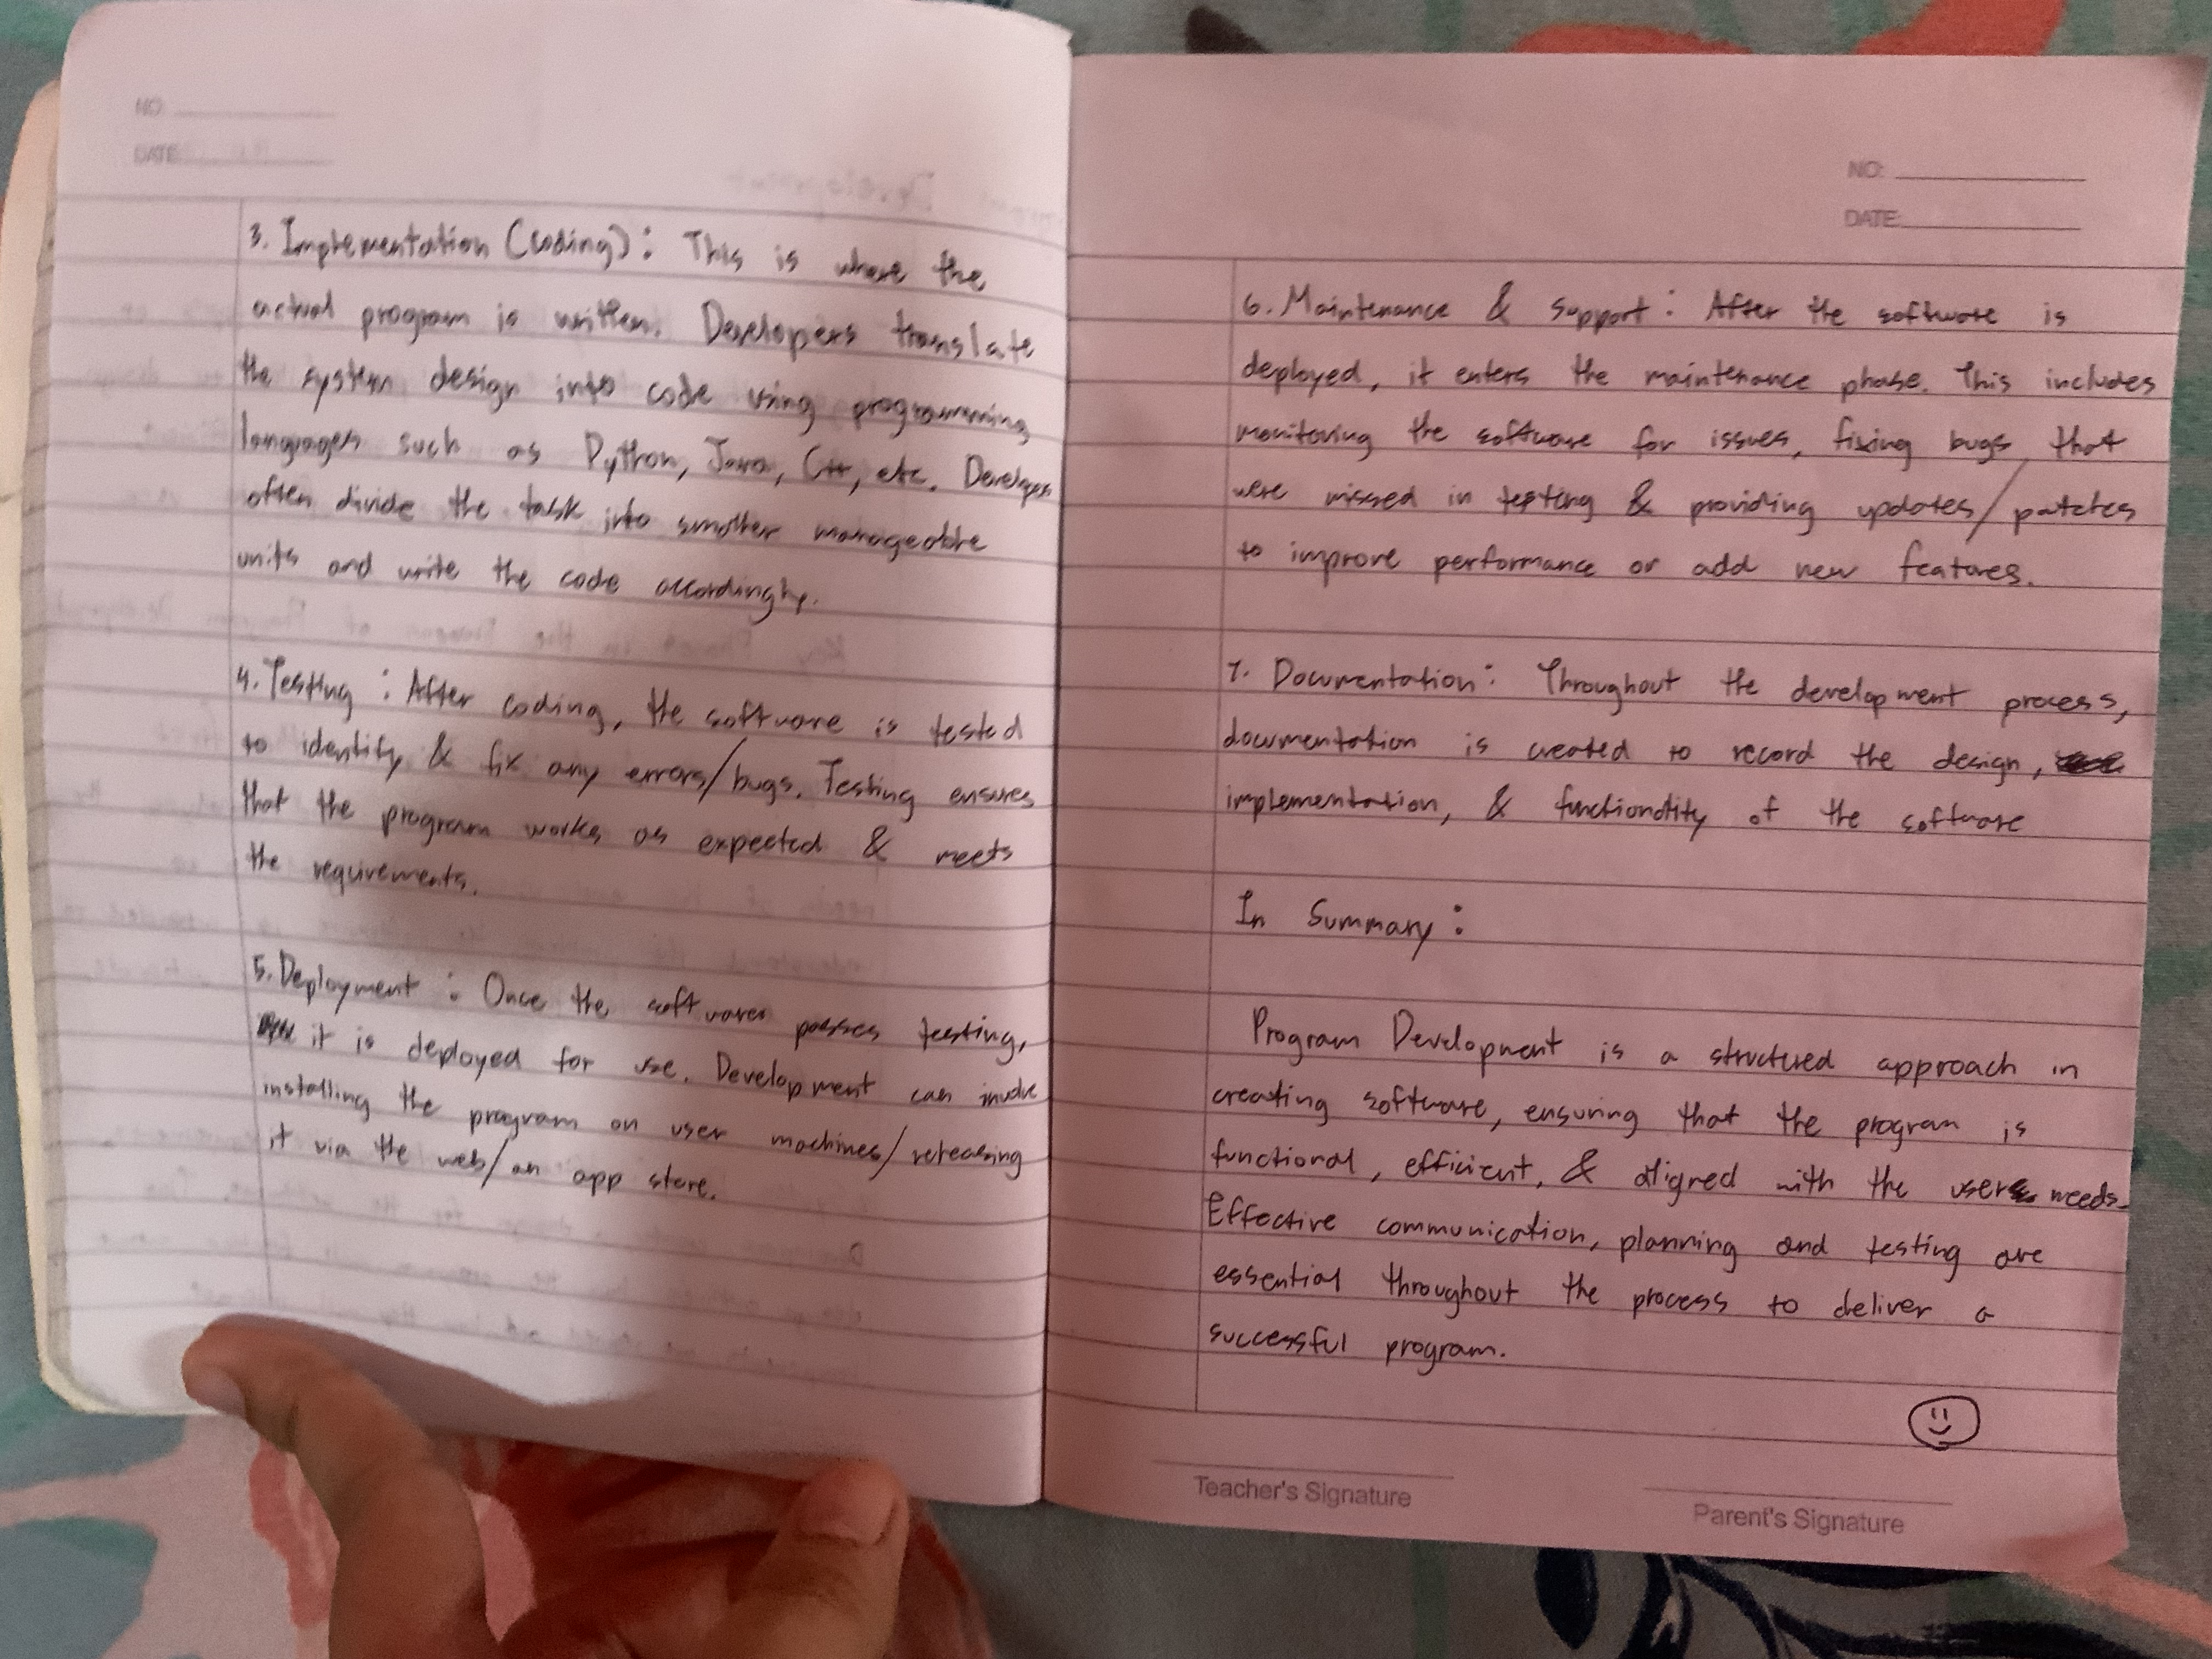 NO
DATE:
3. Implementation (Coding): This is where the
actual program is written. Developers translate
the system design into code using programming
languages such as Python, Java, C++, etc. Developers
often divide the task into smaller manageable
units and write the code accordingly.
4. Testing : After coding, the software is tested
to identify & fix any errors/bugs. Testing ensures
that the program works as expected & meets
the requirements.
5. Deployment : Once the software passes testing,
it is deployed for use. Development can involve
installing the program on user machines/releasing
it via the web/an app store.
NO:
DATE:
6. Maintenance & Support : After the software is
deployed, it enters the maintenance phase. This includes
monitoring the software for issues, fixing bugs that
were missed in testing & providing updates/patches
to improve performance or add new features.
7. Documentation : Throughout the development process,
documentation is created to record the design,
implementation, & functionality of the software
In Summary :
Program Development is a structured approach in
creating software, ensuring that the program is
functional, efficient, & aligned with the users needs.
Effective communication, planning and testing are
essential throughout the process to deliver a
successful program.
Teacher's Signature
Parent's Signature